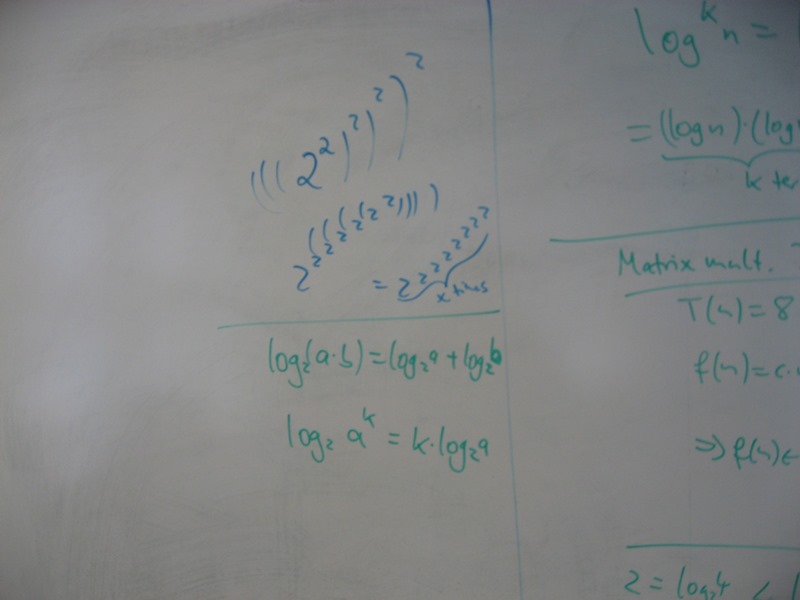 (((2²)²)²)²
2^(2^(2^(2^(2^(2²)))))
= 2^2^2^2^2^2^2^2^2
x times
log₂(a·b) = log₂a + log₂b
log₂ a^k = k·log₂a
log^k n =
= (log n)·(log
k ter
Matrix mult.
T(n) = 8
f(n) = c·
⇒ f(n) ∈
2 = log₂4 <